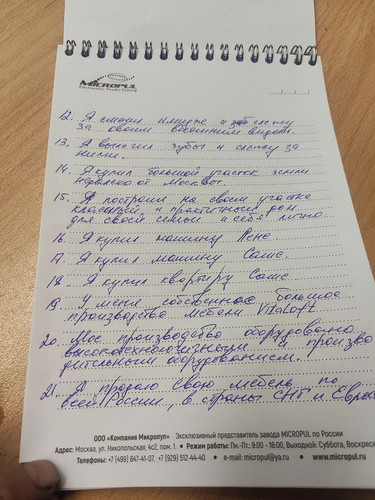 MICROPUL
12. Я сменил имидж и слежу
за своим внешним видом.
13. Я вылечил зубы и слежу за
ними.
14. Я купил большой участок земли
недалеко от Москвы.
15. Я построил на своём участке
классный и практичный дом
для своей семьи и себя лично.
16. Я купил машину Лене
17. Я купил машину Саше.
18 Я купил квартиру Саше
19 У меня собственное большое
производство мебели VitaLoft
20. Моё производство оборудовано
высокотехнологичным и произво
дительным оборудованием.
21. Я продаю свою мебель по
всей России, в страны СНГ и Евро
ООО «Компания Микропул» Эксклюзивный представитель завода MICROPUL по России
Адрес: Москва, ул. Никопольская, 4с2, пом. 1. • Режим работы: Пн.-Пт.: 9:00 - 18:00, Выходной: Суббота, Воскресе
Телефоны: +7 (499) 647-41-07, +7 (929) 512-44-40 • e-mail: micropul@ya.ru • www.micropul.ru